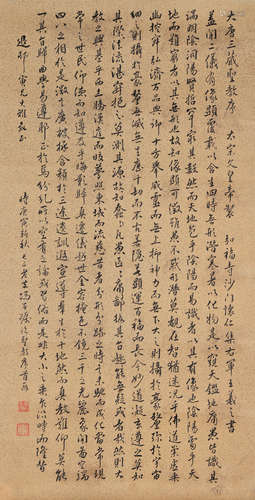 大唐三藏聖教序 太宗文皇帝製 弘福寺沙門懷仁集右軍王羲之書
蓋聞二儀有像顯覆載以含生四時無形潛寒暑以化物是以窺天鑑地庸愚皆識其
端明陰洞陽賢哲罕窮其數然而天地苞乎陰陽而易識者以其有像也陰陽處乎天
地而難窮者以其無形也故知像顯可徵雖愚不惑形潛莫覩在智猶迷況乎佛道崇虛
乘幽控寂弘濟萬品典御十方舉威靈而無上抑神力而無下大之則彌於宇宙
細則攝於毫釐無滅無生歷千劫而不古若隱若顯運百福而長今妙道凝玄遵之莫知
其際法流湛寂挹之莫測其源故知蠢蠢凡愚區區庸鄙投其旨趣能無疑或者哉然則大
教之興基乎西土騰漢庭而皎夢照東域而流慈昔者分形分跡之時言未馳而成化當常現
常之世民仰德而知遵及乎晦影歸真遷儀越世金容掩色不鏡三千之光麗象開圖空端
四八之相於是微言廣被拯含類於三途遺訓遐宣導群生於十地然而真教難仰莫能
一其旨歸曲學易遵邪正於焉紛糾所以空有之論或習俗而是非大小之乘乍沿時而隆替
寅兄大雅教正
時庚寅新秋